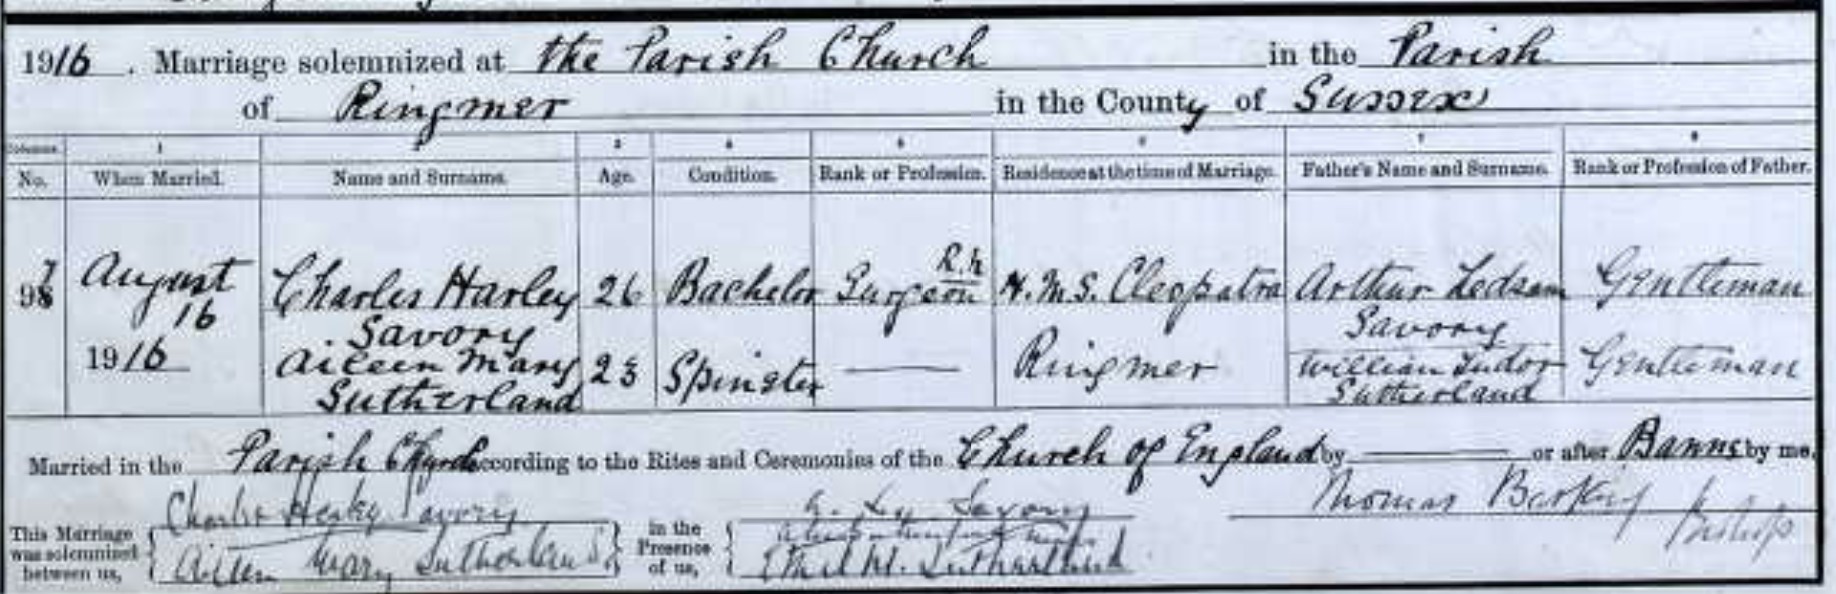 1916. Marriage solemnized at the Parish Church in the Parish
of Ringmer in the County of Sussex
Columns 1 2 3 4 5 6 7 8
No. When Married. Name and Surname. Age. Condition. Rank or Profession. Residence at the time of Marriage. Father's Name and Surname. Rank or Profession of Father.
97 August Charles Harley 26 Bachelor Surgeon R.N. H.M.S. Cleopatra Arthur Ledsam Gentleman
16 Savory Savory
1916 Aileen Mary 23 Spinster — Ringmer William Tudor Gentleman
Sutherland Sutherland
Married in the Parish Church according to the Rites and Ceremonies of the Church of England by — or after Banns by me,
Charles Harley Savory Savory Thomas Barking
This Marriage was solemnized between us, in the Presence of us, Bishop
Aileen Mary Sutherland Ethel M. Sutherland